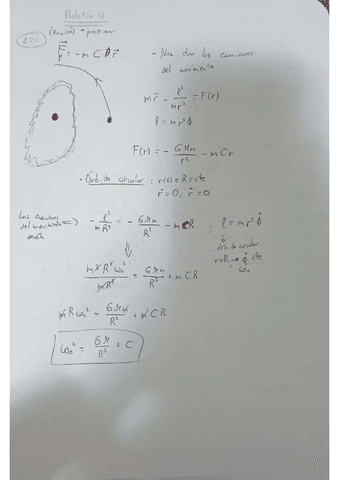 Boletín 4
F⃗ = -m C r⃗
- Nos dan las ecuaciones
del movimiento
m r̈ - ℓ²/mr³ = F(r)
ℓ = m r² φ̇
F(r) = - GMm/r² - m C r
· Órbita circular : r(t) = R = cte
ṙ = 0, r̈ = 0
Las ecuaciones del movimiento => - ℓ²/mR³ = - GMm/R² - m C R ; ℓ = m r² φ̇
⇓
órbita circular
r = R → φ̇ cte
ω₀
m² R⁴ ω₀²/mR³ = GMm/R² + m C R
m R ω₀² = GMm/R² + m C R
ω₀² = GM/R³ + C